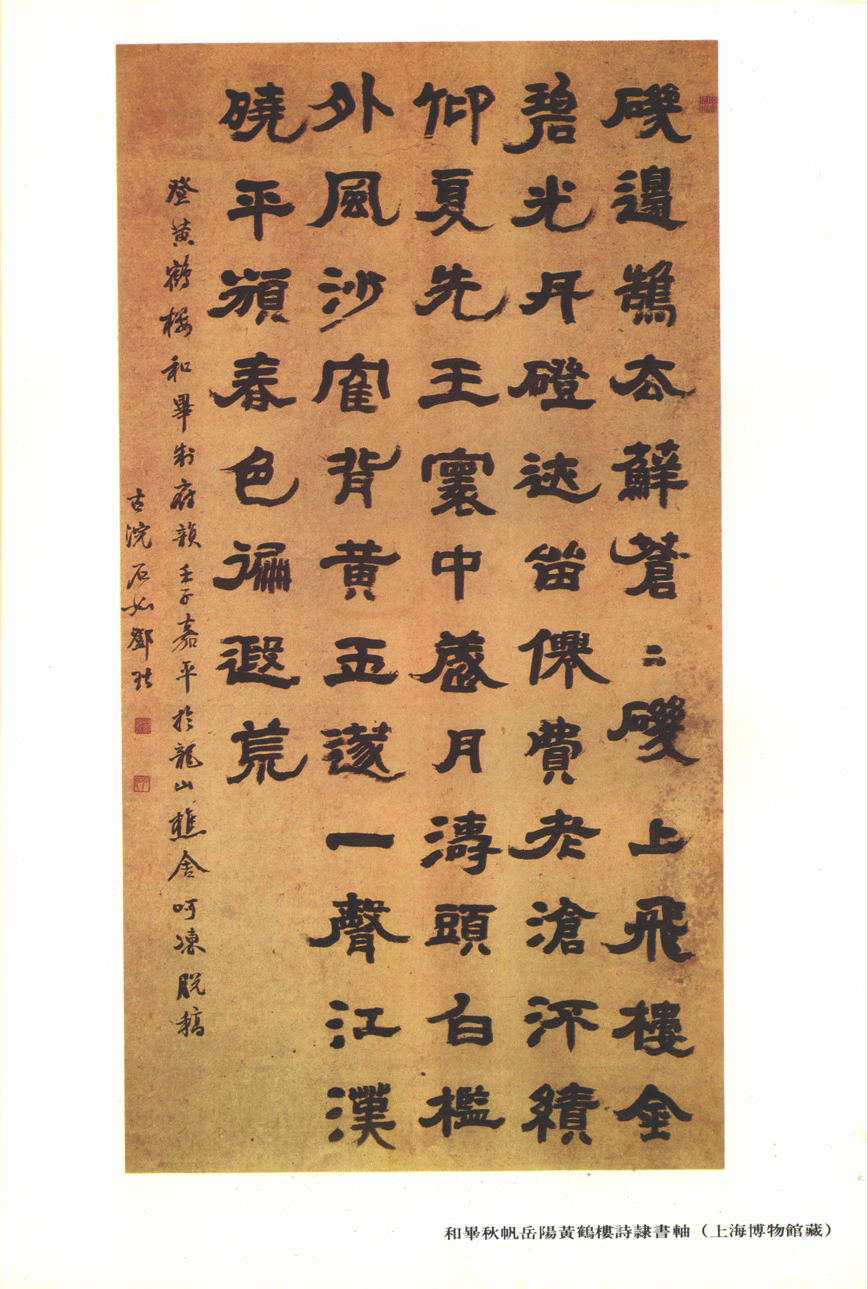 磯邊鵠去蘚蒼〻磯上飛樓金
碧光丹磴迷留僳費老滄江積
仰夏先王寰中歲月濤頭白檻
外風沙寉背黃玉邃一聲江漢
曉平蘋春色徧遐荒
登黃鶴樓和畢制府韻壬子嘉平於龍山樵舍呵凍脫稿
古浣石如鄧琰
和畢秋帆岳陽黃鶴樓詩隸書軸（上海博物館藏）